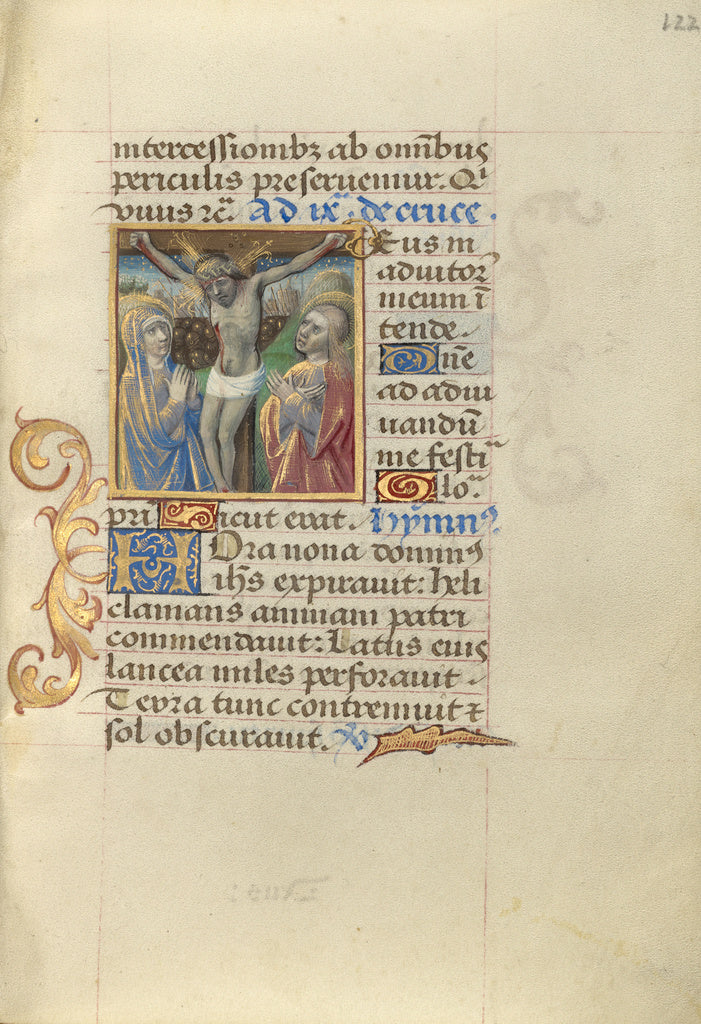 122
intercessionibꝫ ab omībus
periculis preseruemur. Qͥ
viuis ꝛc̄. ad ixͣ. de cruce.
Deus in
adiutoꝝ
meum ī
tende.
Dn̄e
ad adiu
uandū
me festiᷓ
Gloᷓ.
pri Sicut erat. hymnꝰ
Hora nona dominꝰ
ih̄s expirauit: heli
clamans animam patri
commendauit: Latus eius
lancea miles perforauit
Terra tunc contremuit ⁊
sol obscurauit.